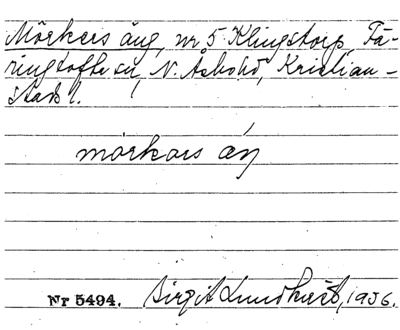 Mörkers äng, nr 5 Klingstorp, Fä-
ringtofte sn, N. Åsbohd, Kristian-
stads l.
mörkars äŋ
Nr 5494. Birgit Lundkvist, 1936.